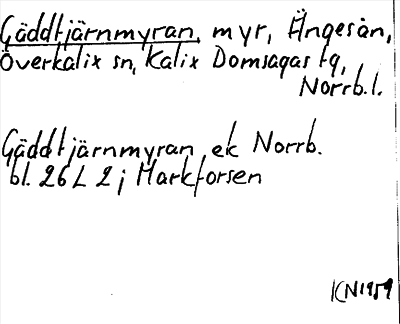 Gäddtjärnmyran, myr, Ängesån,
Överkalix sn, Kalix Domsagas tg,
Norrb. l.
Gäddtjärnmyran ek Norrb.
bl. 26 L 2 j Markforsen
KN 1959